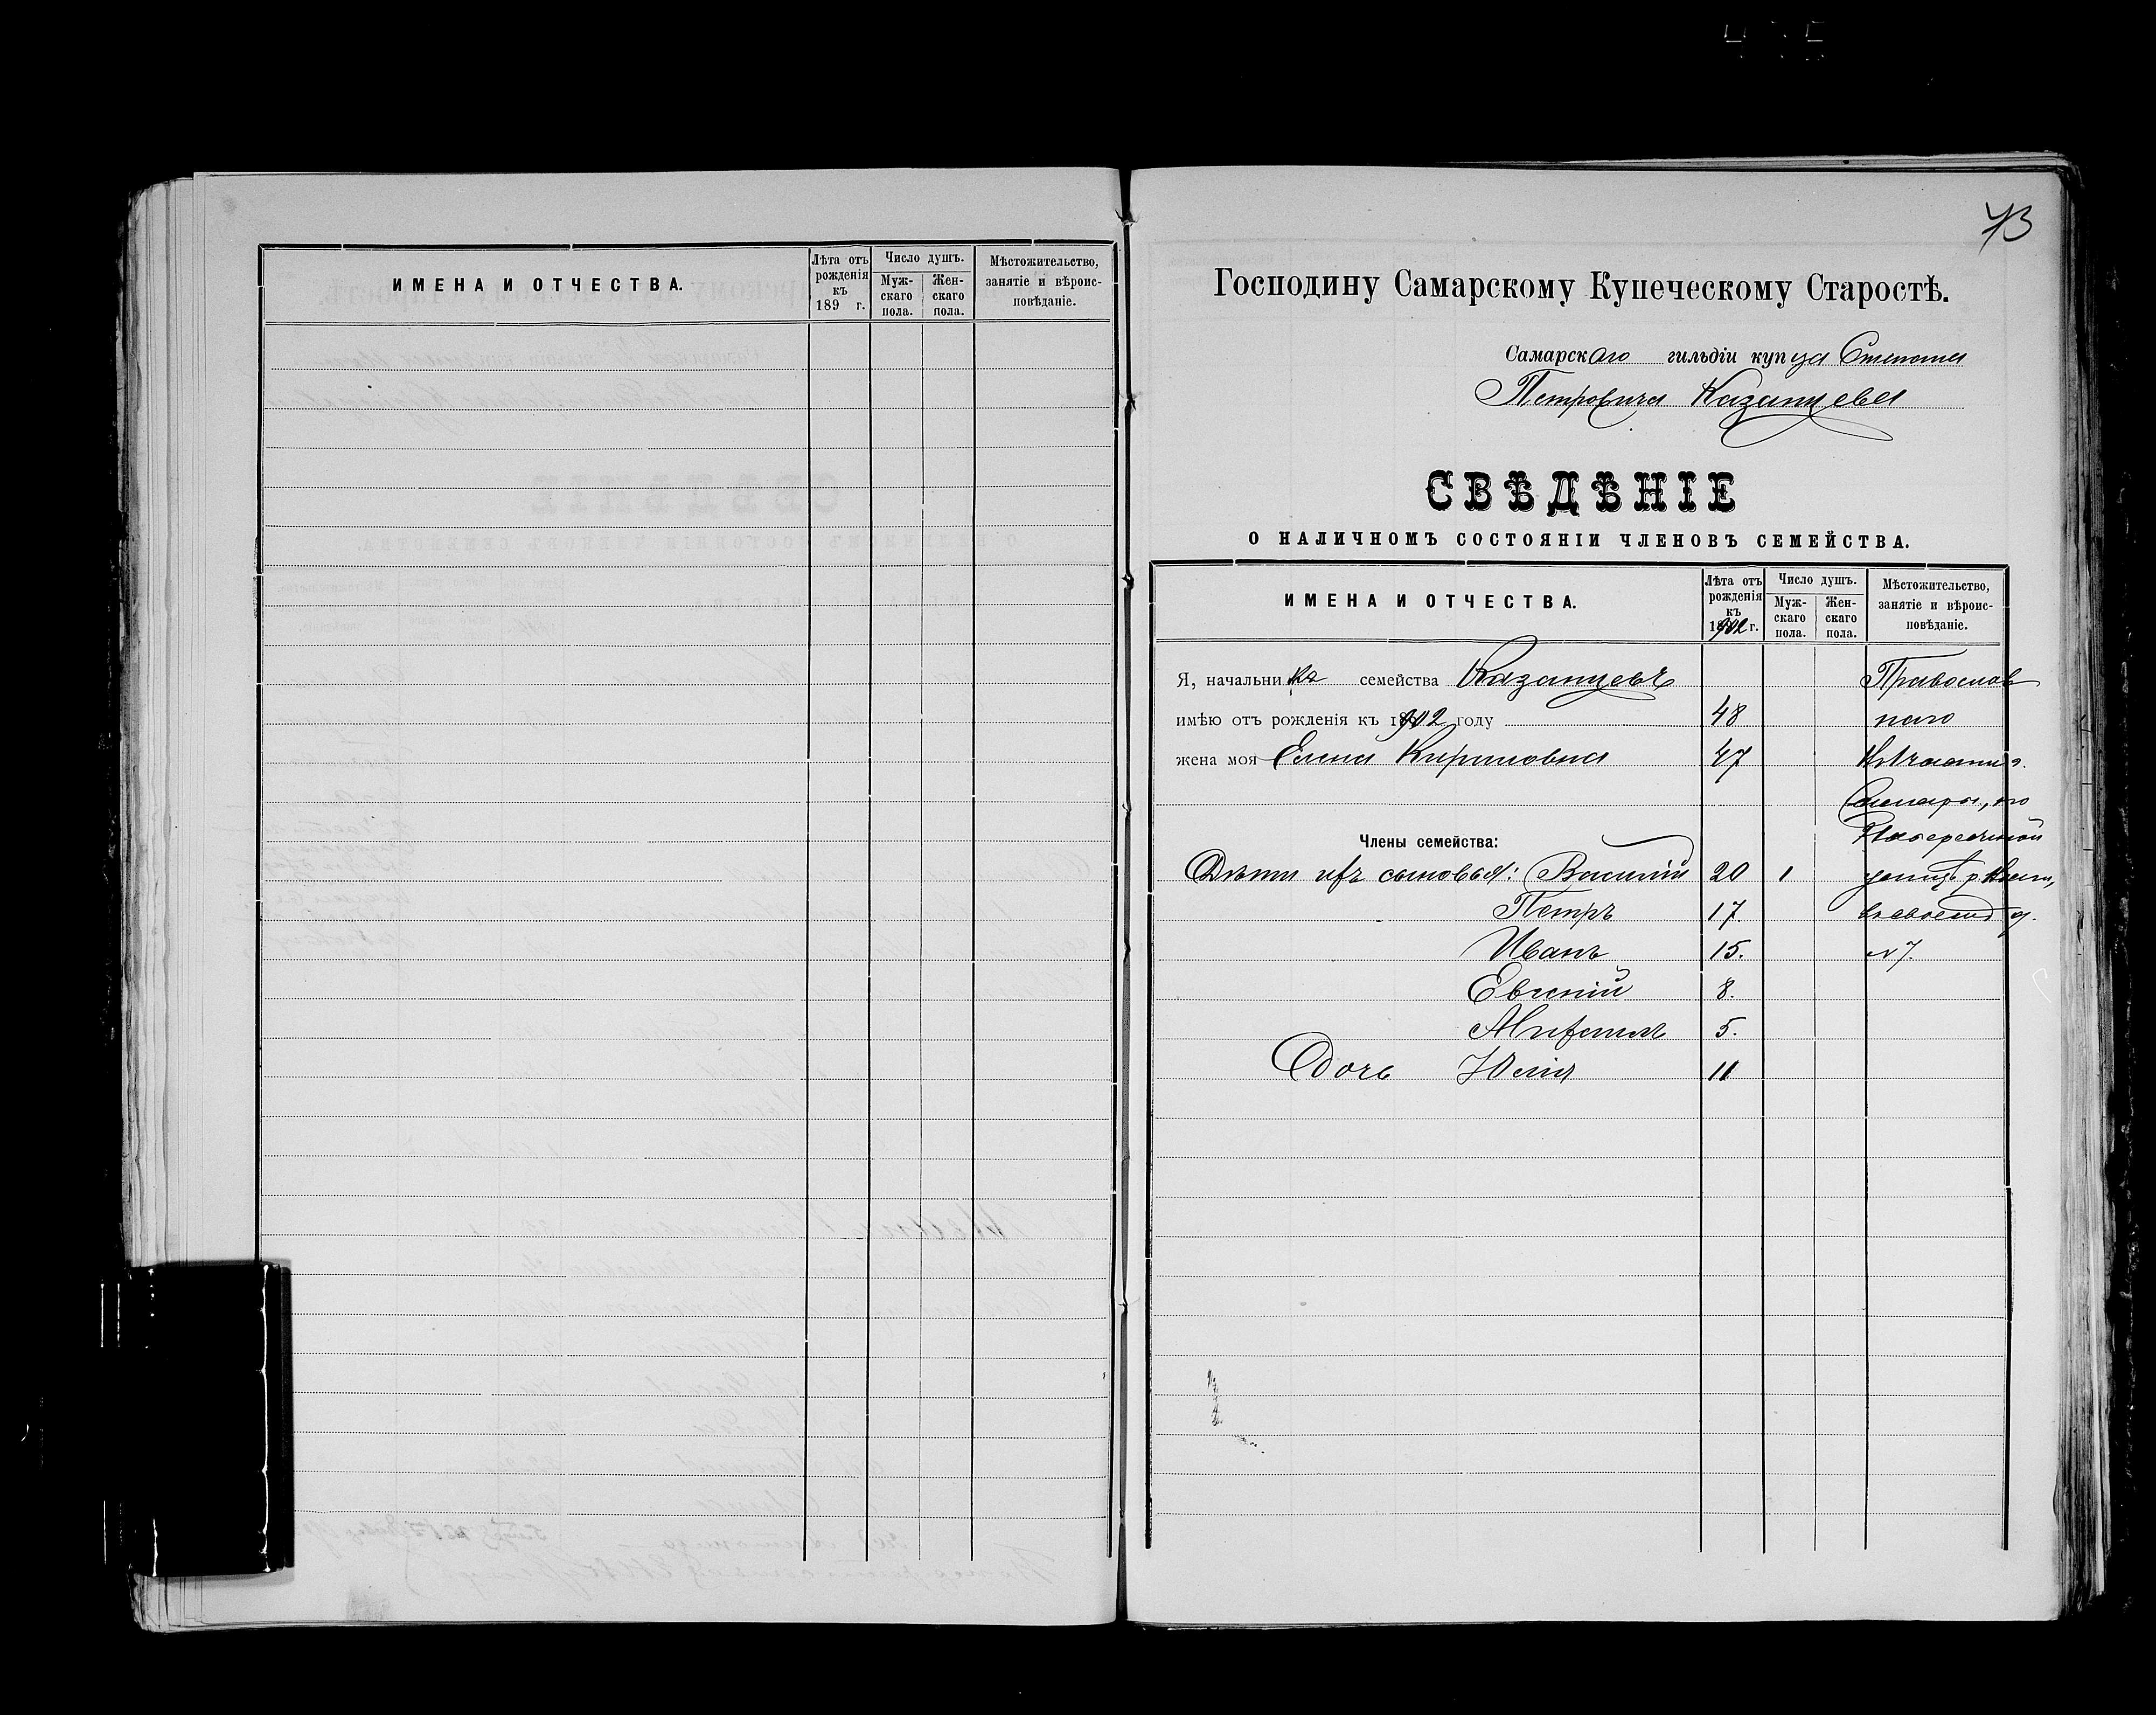 ИМЕНА И ОТЧЕСТВА.
Лѣта отъ рожденія къ 189 г.
Число душъ.
Мужскаго пола.
Женскаго пола.
Мѣстожительство, занятіе и вѣроисповѣданіе.
73
Господину Самарскому Купеческому Старостѣ.
Самарскаго гильдіи купца Степана
Петровича Казанцева
СВѢДѢНІЕ
О НАЛИЧНОМЪ СОСТОЯНІИ ЧЛЕНОВЪ СЕМЕЙСТВА.
ИМЕНА И ОТЧЕСТВА.
Лѣта отъ рожденія къ 1902 г.
Число душъ.
Мужскаго пола.
Женскаго пола.
Мѣстожительство, занятіе и вѣроисповѣданіе.
Я, начальникъ семейства Казанцевъ Православ
имѣю отъ рожденія къ 1902 году 48 наго
жена моя Елена Кириловна 47 части г.
Самары, по
Члены семейства: Набережной
Дѣти ихъ сыновья: Василий 20 1 улицѣ р.
Петръ 17. въ своемъ д.
Иванъ 15. №7.
Евгений 8.
5.
Дочь Юлия 11